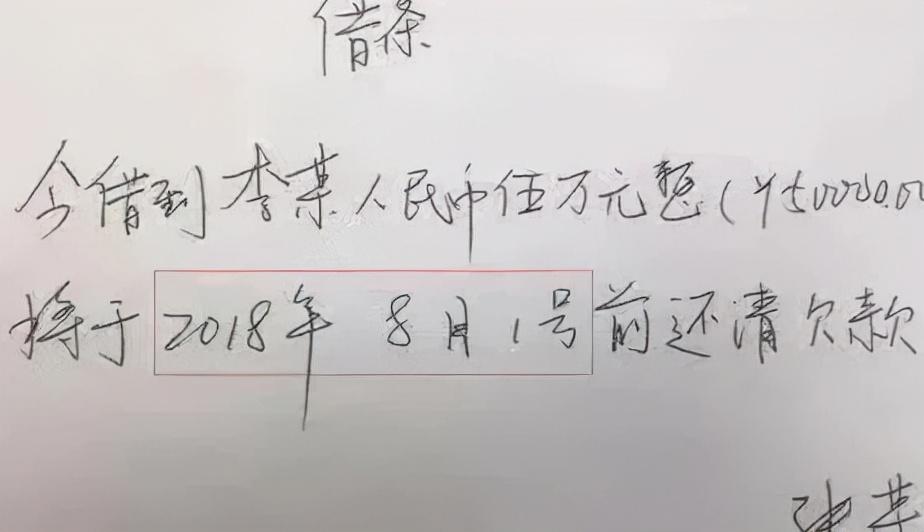 借条
今借到李某人民币伍万元整(¥50000.00
将于2018年 8月1号前还清欠款
张某